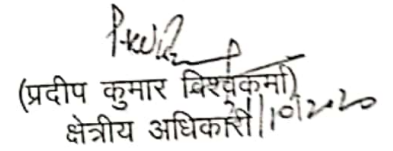 (प्रदीप कुमार विश्वकर्मा)
क्षेत्रीय अधिकारी /10/2020